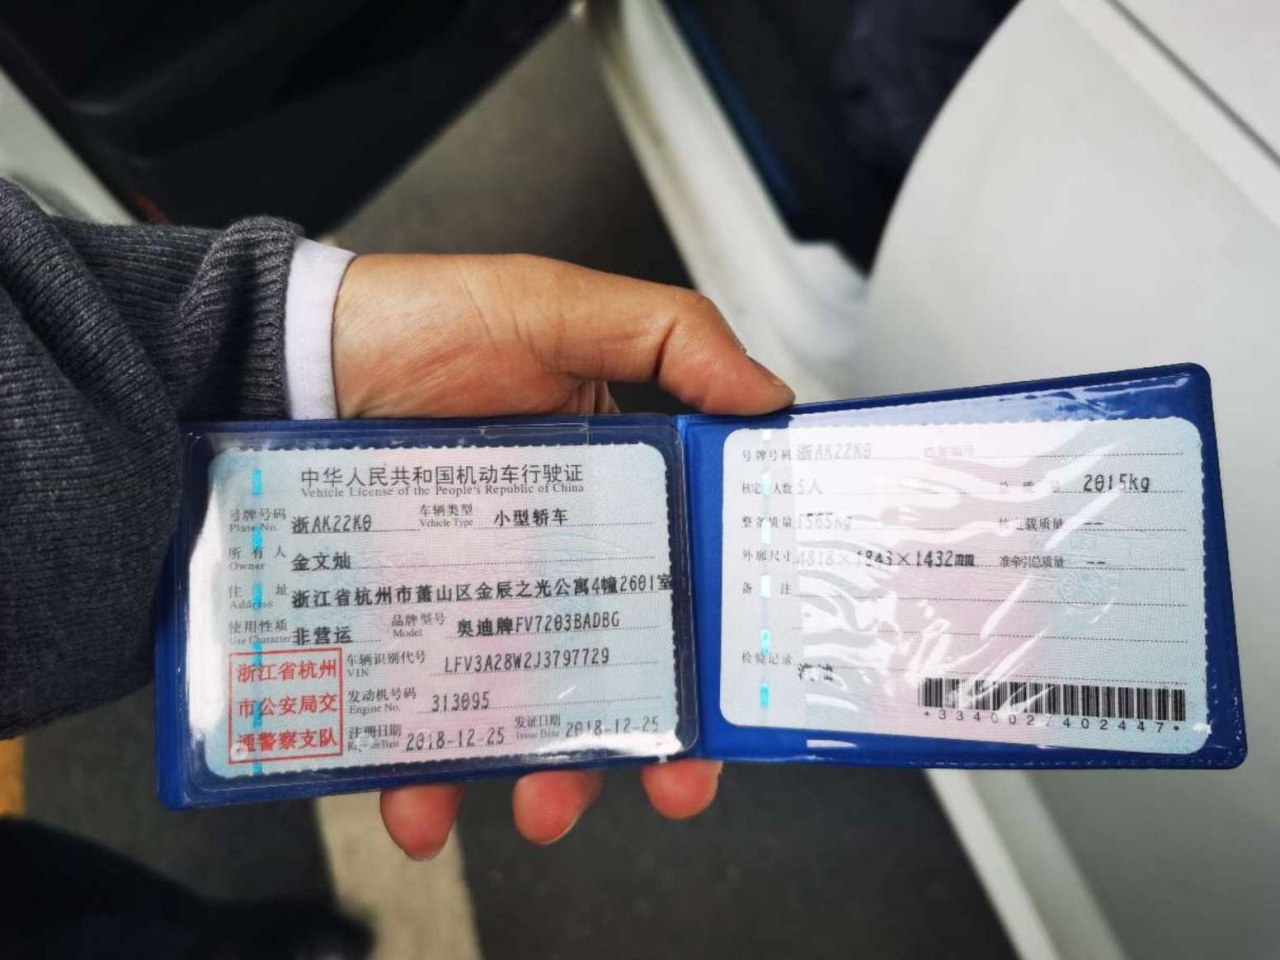 中华人民共和国机动车行驶证
Vehicle License of the People's Republic of China
号牌号码 浙AK22K0 车辆类型 小型轿车
Plate No. Vehicle Type
所有人 金文灿
Owner
住址 浙江省杭州市萧山区金辰之光公寓4幢2601室
Address
使用性质 非营运 品牌型号 奥迪牌FV7203BADBG
Use Character Model
浙江省杭州
市公安局交
通警察支队
车辆识别代号 LFV3A28W2J3797729
VIN
发动机号码 313095
Engine No.
注册日期 2018-12-25 发证日期 2018-12-25
Register Date Issue Date
号牌号码 浙AK22K0 档案编号
核定人数 5人 总质量 2015kg
整备质量 1565kg 核定载质量 --
外廓尺寸 4818×1843×1432mm 准牵引总质量 --
备注
检验记录 汽油